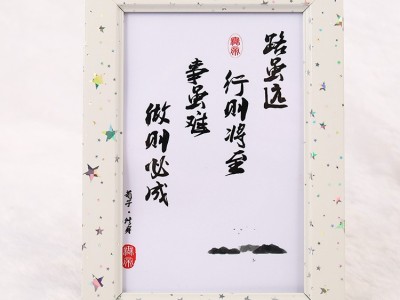 路虽远
行则将至
事虽难
做则必成
荀子·修身